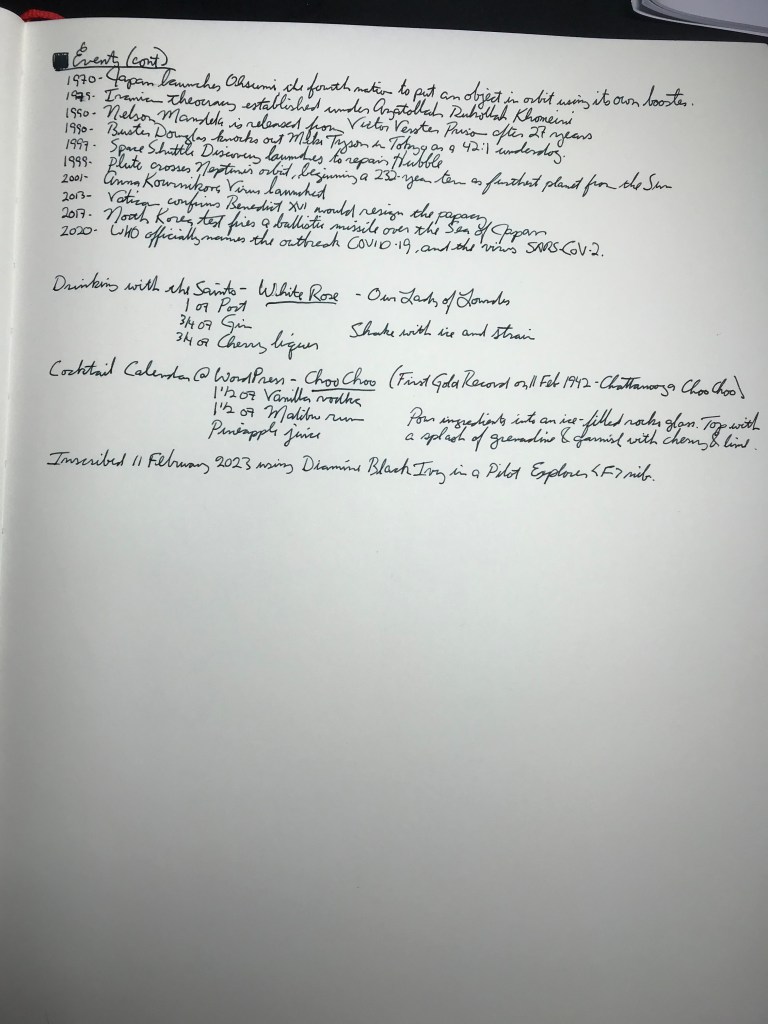 Events (cont)
1970- Japan launches Ohsumi, the fourth nation to put an object in orbit using its own booster.
1979- Iranian theocracy established under Ayatollah Ruhollah Khomeini
1990- Nelson Mandela is released from Victor Verster Prison after 27 years
1990- Buster Douglas knocks out Mike Tyson in Tokyo as a 42:1 underdog.
1997- Space Shuttle Discovery launches to repair Hubble
1999- Pluto crosses Neptune's orbit, beginning a 232-year term as furthest planet from the Sun
2001- Anna Kournikova Virus launched
2013- Vatican confirms Benedict XVI would resign the papacy
2017- North Korea test fires a ballistic missile over the Sea of Japan
2020- WHO officially names the outbreak COVID-19, and the virus SARS-CoV-2.
Drinking with the Saints- White Rose - Our Lady of Lourdes
1 oz Port
3/4 oz Gin Shake with ice and strain
3/4 oz Cherry liquer
Cocktail Calendar @ WordPress- Choo Choo (First Gold Record on 11 Feb 1942 - Chattanooga Choo Choo)
1 1/2 oz Vanilla vodka
1 1/2 oz Malibu rum Pour ingredients into an ice-filled rocks glass. Top with
Pineapple juice a splash of grenadine & garnish with cherry & lime.
Inscribed 11 February 2023 using Diamine Black Ivy in a Pilot Explorer <F> nib.